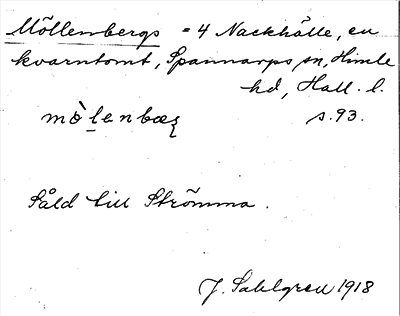 Möllembergs = 4 Nackhälle, en
kvarntomt, Spannarps sn, Himle
hd, Hall. l.
mò̤lenbæʒ s. 93.
Såld till Strömma.
J. Sahlgren 1918